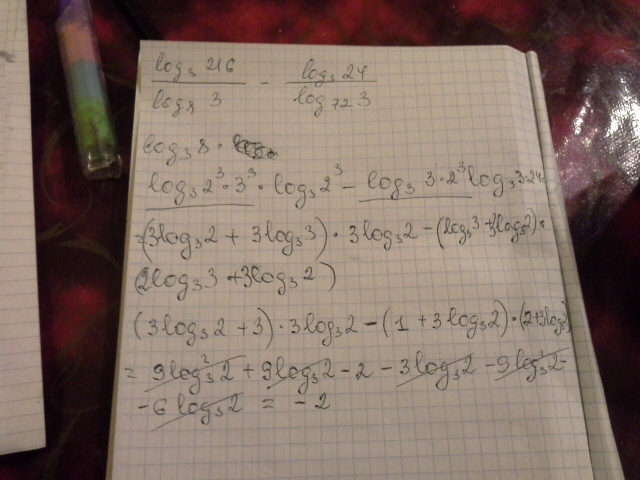 log₃ 216 / log₈ 3 - log₃ 24 / log₇₂ 3
log₃ 8 ·
log₃ 2³ · 3³ · log₃ 2³ - log₃ 3 · 2³ log₃ 3 · 24
(3log₃ 2 + 3log₃ 3) · 3log₃ 2 - (log₃ 3 + 3log₃ 2) ·
(2log₃ 3 + 3log₃ 2)
(3log₃ 2 + 3) · 3log₃ 2 - (1 + 3log₃ 2) · (2 + 3log₃ 2)
= 9log₃² 2 + 9log₃ 2 - 2 - 3log₃ 2 - 9log₃² 2 -
- 6log₃ 2 = - 2